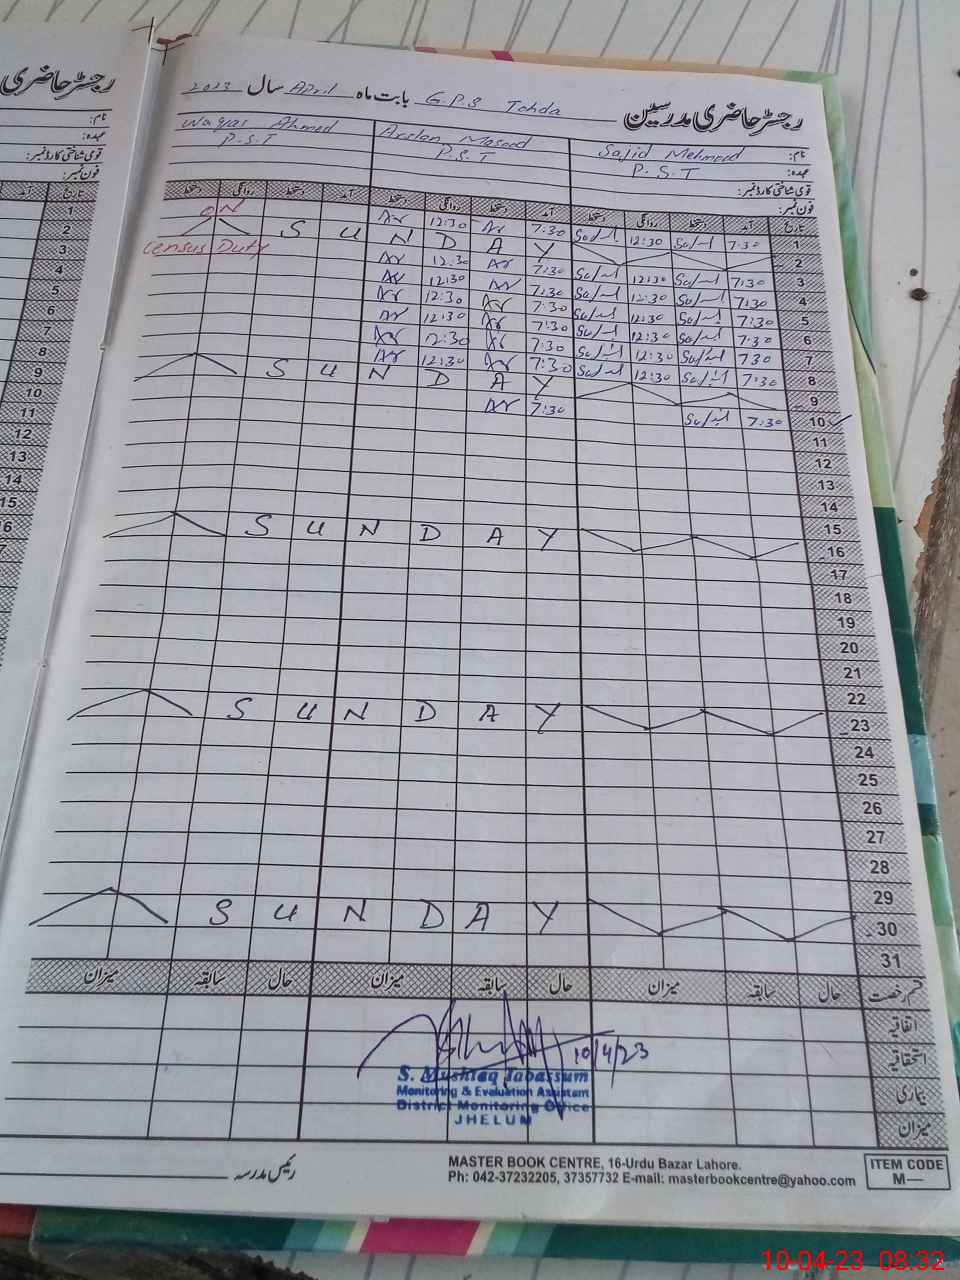 رجسٹر حاضری
نام:
عہدہ:
قومی شناختی کارڈ نمبر:
فون نمبر:
رجسٹر حاضری مدرسین G.P.S Tohda بابت ماہ April سال 2023
نام: Sajid Mehmood Arslan Masood Waqas Ahmed
عہدہ: P.S.T P.S.T P.S.T
قومی شناختی کارڈ نمبر:
فون نمبر:
تاریخ آمد دستخط روانگی دستخط آمد دستخط روانگی دستخط آمد دستخط روانگی دستخط
1 7:30 12:30 7:30 Ar 12:30 Ar ON
2 S U N D A Y
Census Duty
3 7:30 12:30 7:30 Ar 12:30 Ar
4 7:30 12:30 7:30 Ar 12:30 Ar
5 7:30 12:30 7:30 Ar 12:30 Ar
6 7:30 12:30 7:30 Ar 12:30 Ar
7 7:30 12:30 7:30 Ar 12:30 Ar
8 7:30 12:30 7:30 Ar 12:30 Ar
9 S U N D A Y
10 7:30 7:30 Ar
11
12
13
14
15
16 S U N D A Y
17
18
19
20
21
22
23 S U N D A Y
24
25
26
27
28
29
30 S U N D A Y
31
قسم رخصت حال سابقہ میزان حال سابقہ میزان حال سابقہ میزان
اتفاقیہ
استحقاقیہ
بیماری
میزان
10/4/23
S. Mushtaq Tabassum
Monitoring & Evaluation Assistant
District Monitoring Office
JHELUM
رئیس مدرسہ
MASTER BOOK CENTRE, 16-Urdu Bazar Lahore.
Ph: 042-37232205, 37357732 E-mail: masterbookcentre@yahoo.com
ITEM CODE
M—
10-04-23 08:32